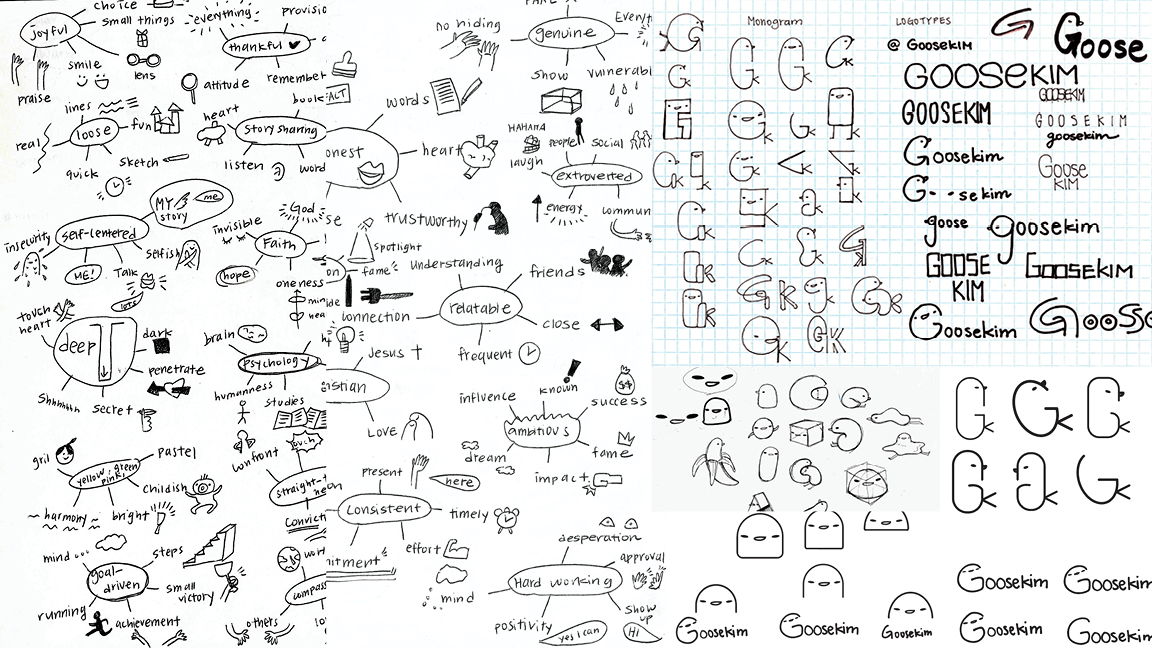 choice
small things
joyful
smile
lens
praise
"everything"
provisio
thankful
attitude
remember
lines
real
loose
fun
sketch
quick
heart
book
FACT
story sharing
listen
word
MY
story
me
insecurity
self-centered
selfish
ME!
Talk
lots
invisible
God
Faith
hope
oneness
touch
heart
deep
dark
penetrate
Shhhhhh
secret
brain
psychology
humanness
studies
gril
pastel
yellow, green
pink,
childish
harmony
bright
confront
ouch
straight-f
Convicti
mind...
goal-
driven
steps
small
victory
running
achievement
compass
others
no hiding
genuine
Everyt
show
vulnerabl
words
onest
heart
trustworthy
HAHAHA
laugh
people
social
extroverted
energy
commun
spotlight
fame
understanding
friends
relatable
connection
close
frequent
Jesus
istian
LOVE
influence
known
success
ambitious
dream
fame
impact
present
here
Consistent
timely
effort
mitment
mind
desperation
approval
Hard working
positivity
yes I can
Show
up
Hi
Monogram
LOGOTYPES
@ GOOSEKIM
Goose
GOOSEKIM
GOOSEKIM
GOOSEKIM
GOOSEKIM
goosekim
Goosekim
Goose
KIM
G--sekim
goose
goosekim
GOOSE
KIM
GOOSEKIM
Goosekim
GOOSE
GK
GK
GK
GK
GK
GK
GK
Goosekim
Goosekim
Goosekim
Goosekim
Goosekim
Goosekim
Goosekim